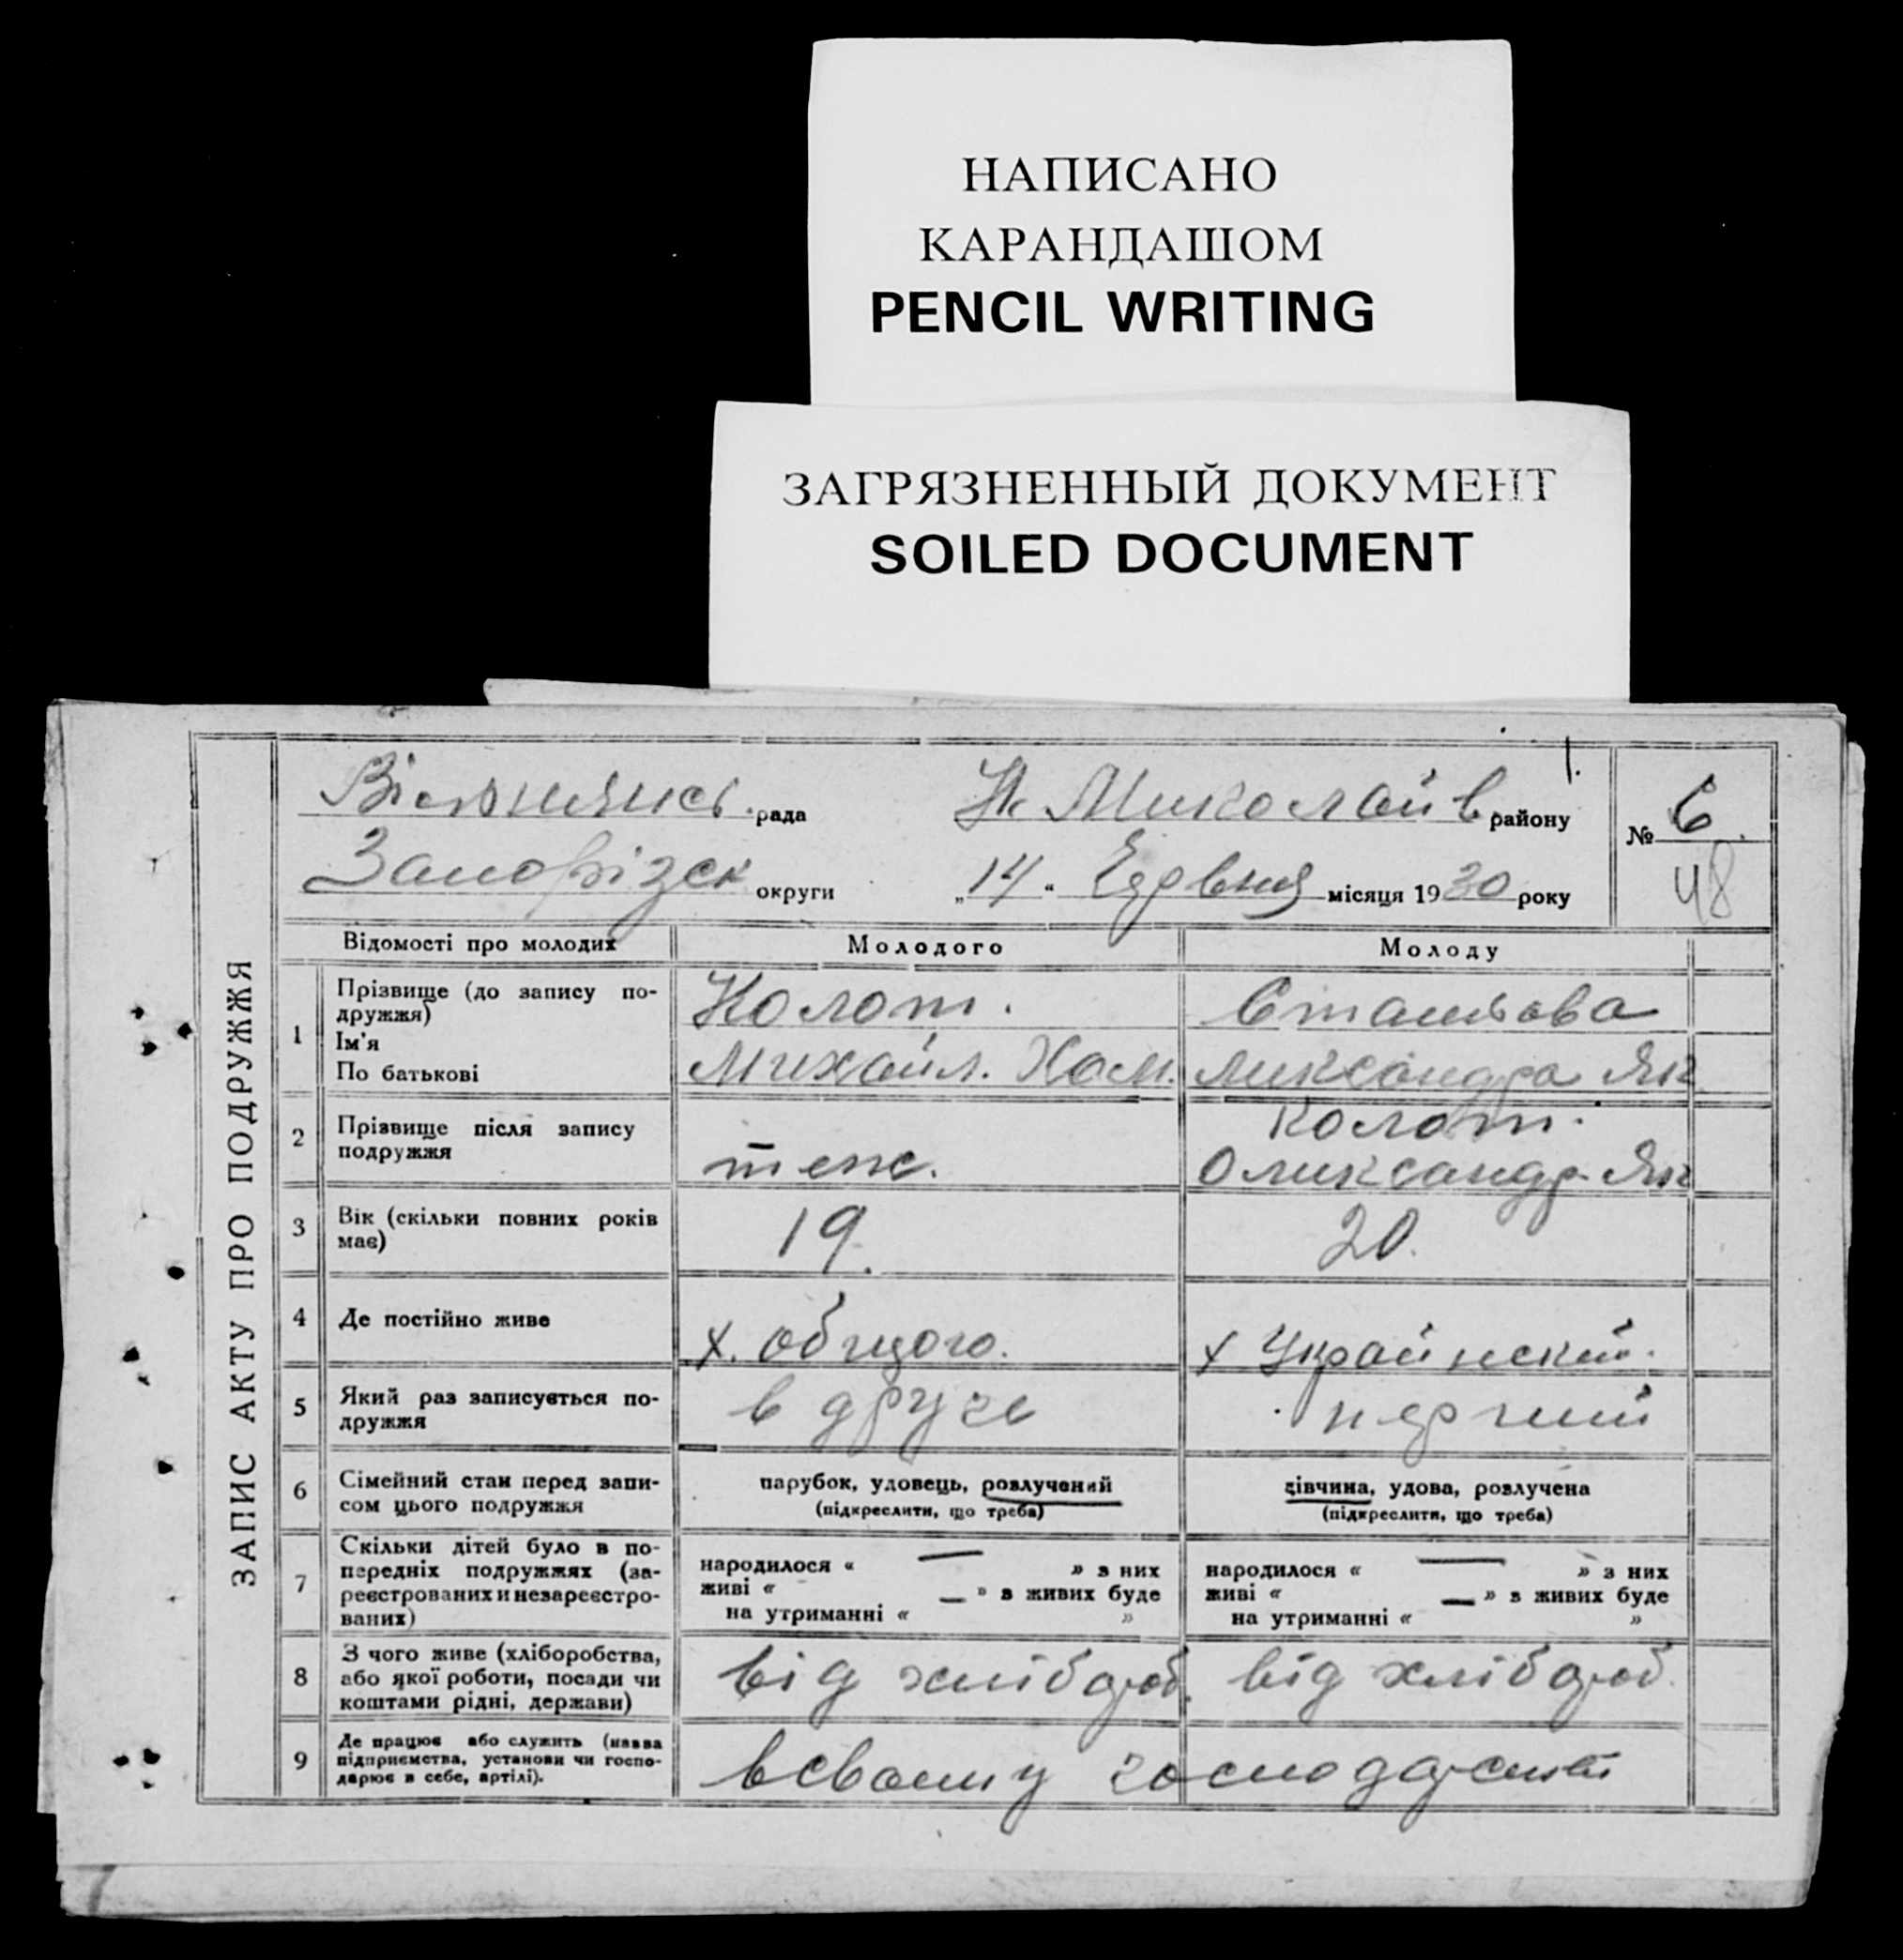 НАПИСАНО
КАРАНДАШОМ
PENCIL WRITING
ЗАГРЯЗНЕННЫЙ ДОКУМЕНТ
SOILED DOCUMENT
ЗАПИС АКТУ ПРО ПОДРУЖЖЯ
рада Н. Миколаїв району
№ 6
Запорізск округи „14“ місяця 1930 року
48
Відомості про молодих Молодого Молоду
1 Прізвище (до запису подружжя) Ім'я По батькові
Колот.
Михайл. Хом.
Олександра Як
2 Прізвище після запису подружжя
теж.
Колот.
Олександр. Як
3 Вік (скільки повних років має) 19. 20.
4 Де постійно живе
х. общого. х Украйнский.
5 Який раз записується подружжя
в друге перший
6 Сімейний стан перед записом цього подружжя
парубок, удовець, розлучений
(підкреслити, що треба)
дівчина, удова, розлучена
(підкреслити, що треба)
7 Скільки дітей було в попередніх подружжях (зареєстрованих и незареєстрованих)
народилося « — » з них
живі « — » з живих буде
на утриманні « »
народилося « — » з них
живі « — » з живих буде
на утриманні « »
8 З чого живе (хліборобства, або якої роботи, посади чи коштами рідні, держави)
від хлібороб. від хлібороб.
9 Де працює або служить (назва підприємства, установи чи господарює в себе, артілі).
всвоему господарстві